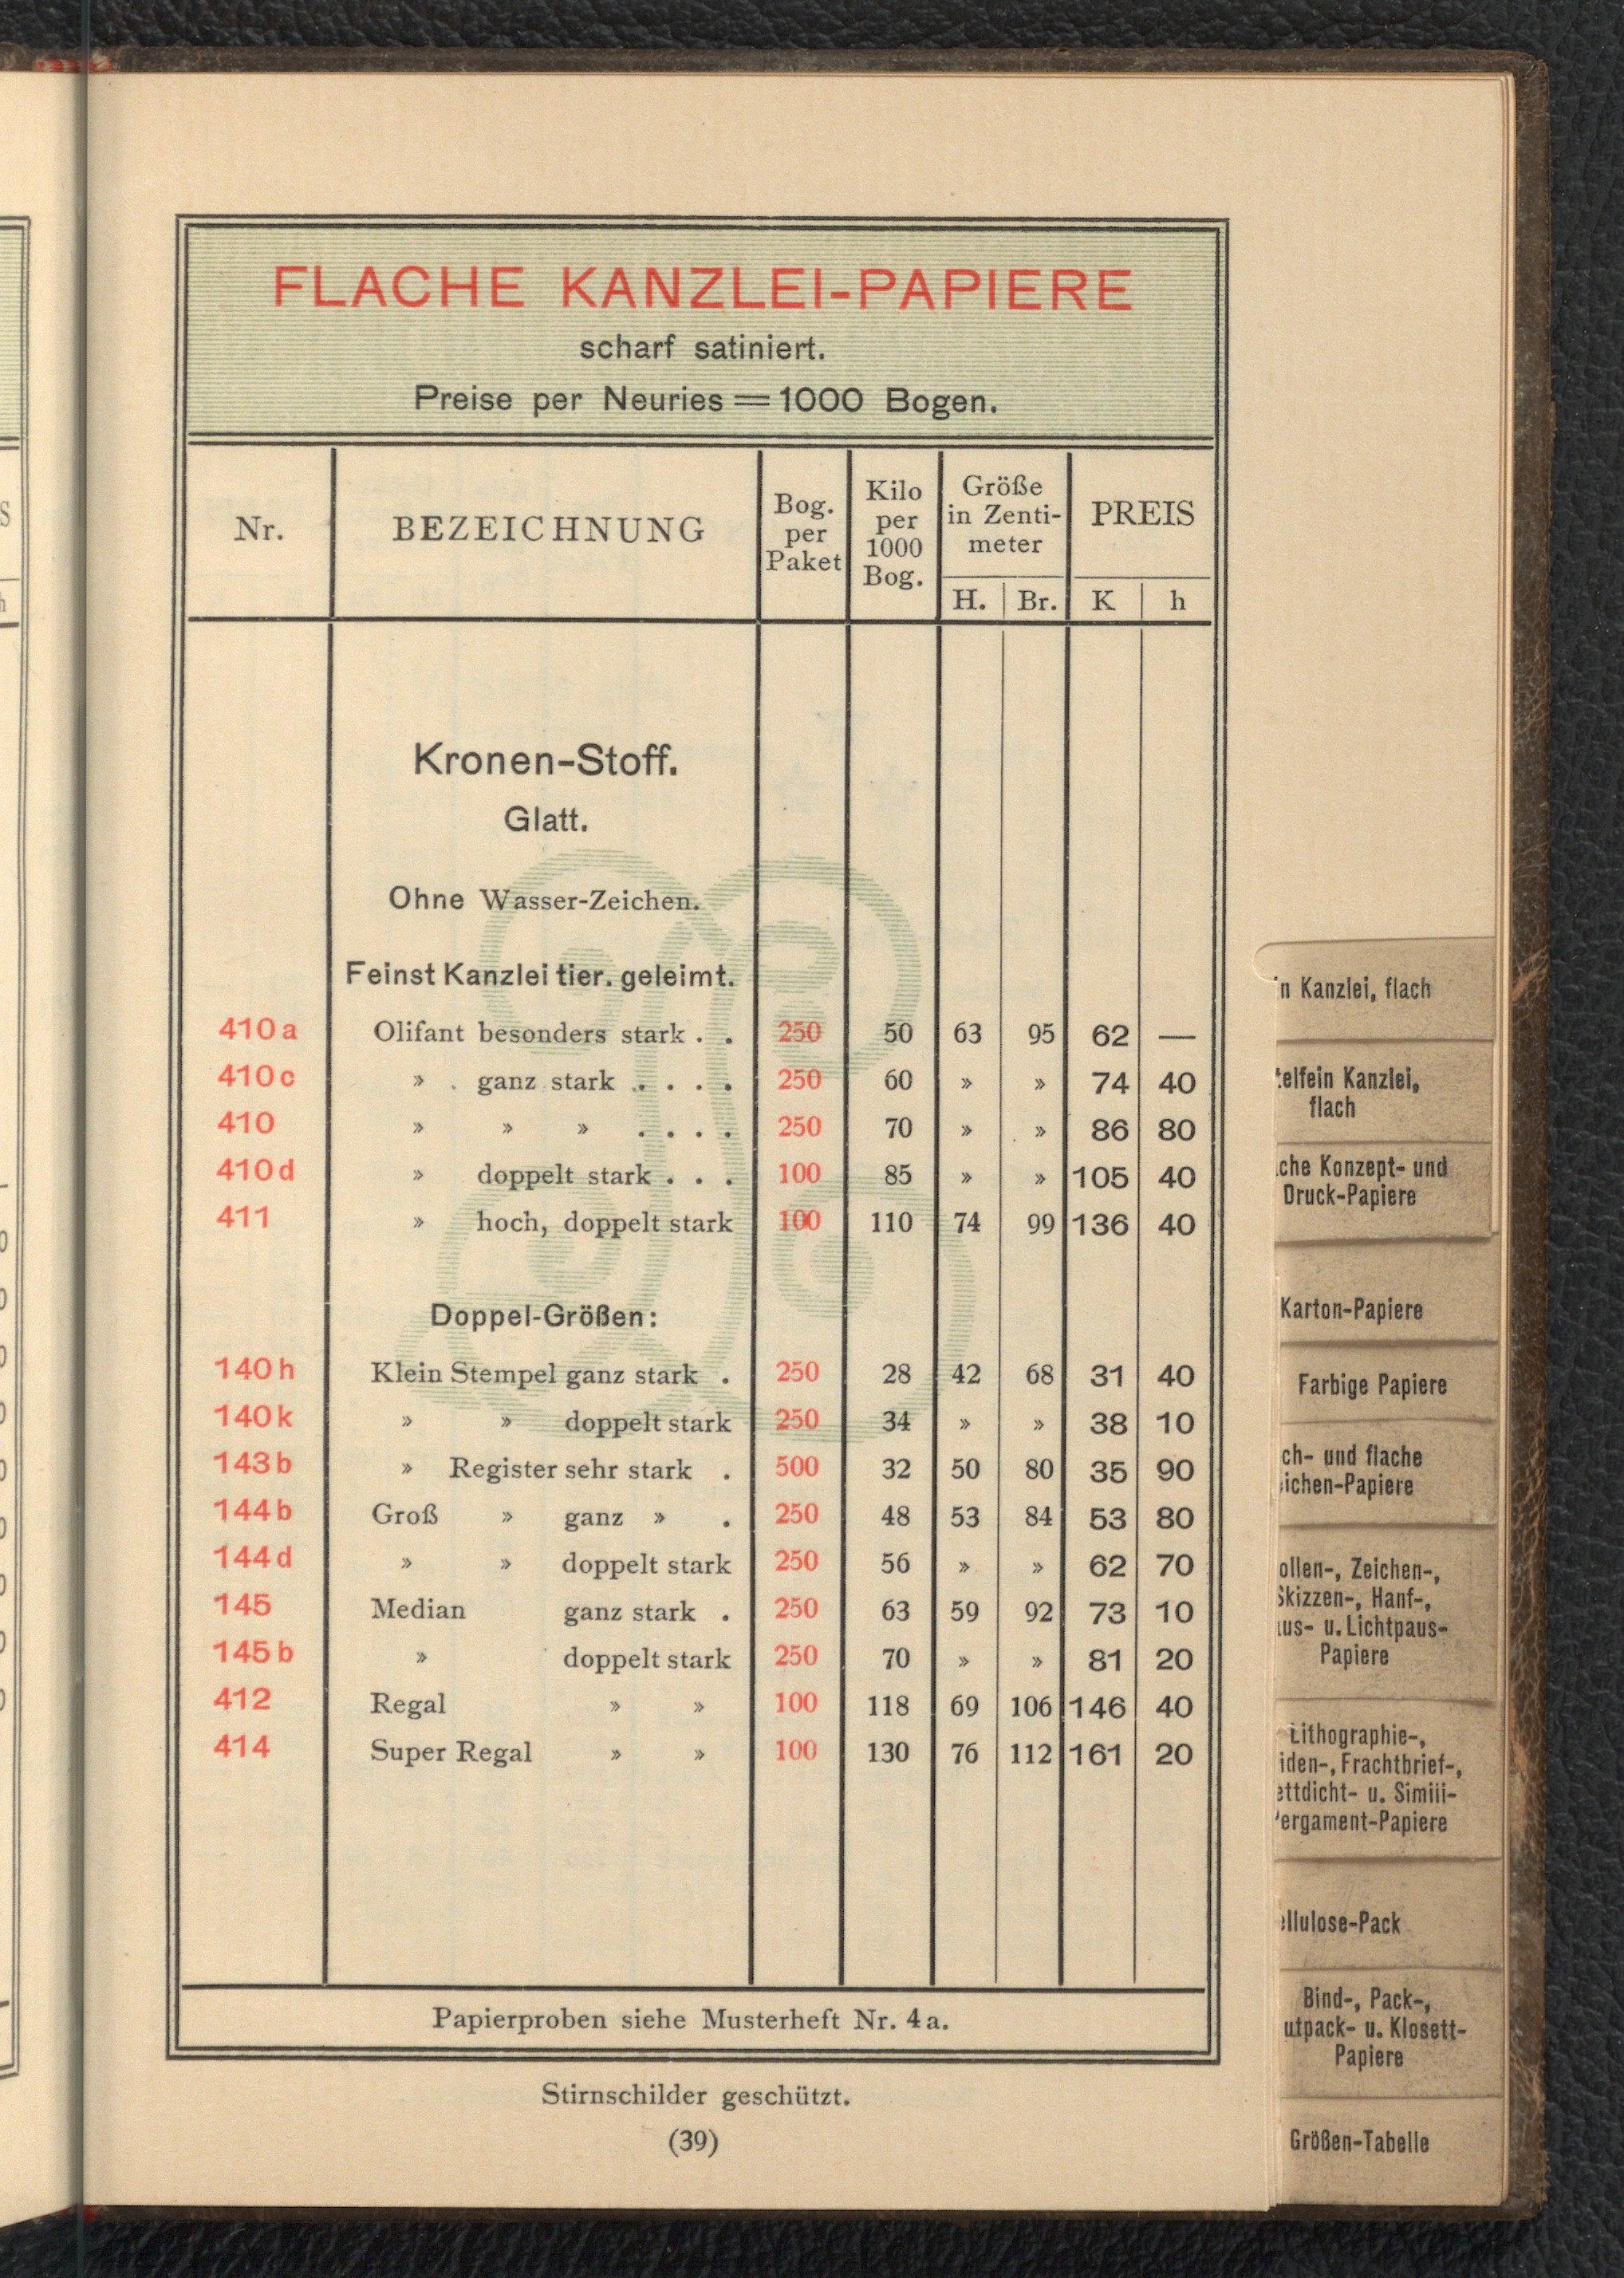 FLACHE KANZLEI-PAPIERE
scharf satiniert.
Preise per Neuries = 1000 Bogen.
Nr. BEZEICHNUNG Bog. per Paket Kilo per 1000 Bog. Größe in Zenti- meter PREIS
H. Br. K h
Kronen-Stoff.
Glatt.
Ohne Wasser-Zeichen.
Feinst Kanzlei tier. geleimt.
410a Olifant besonders stark . . 250 50 63 95 62 —
410c » ganz stark . . . . 250 60 » » 74 40
410 » » » . . . . 250 70 » » 86 80
410d » doppelt stark . . . 100 85 » » 105 40
411 » hoch, doppelt stark 100 110 74 99 136 40
Doppel-Größen:
140h Klein Stempel ganz stark . 250 28 42 68 31 40
140k » » doppelt stark 250 34 » » 38 10
143b » Register sehr stark . 500 32 50 80 35 90
144b Groß » ganz » . 250 48 53 84 53 80
144d » » doppelt stark 250 56 » » 62 70
145 Median ganz stark . 250 63 59 92 73 10
145b » doppelt stark 250 70 » » 81 20
412 Regal » » 100 118 69 106 146 40
414 Super Regal » » 100 130 76 112 161 20
Papierproben siehe Musterheft Nr. 4a.
Stirnschilder geschützt.
(39)
Kanzlei, flach
Kanzlei,
flach
Konzept- und
Druck-Papiere
Karton-Papiere
Farbige Papiere
und flache
Zeichen-,
Skizzen-, Hanf-,
u. Lichtpaus-
Papiere
Lithographie-,
Frachtbrief-,
u. Simili-
Pergament-Papiere
Bind-, Pack-,
u. Klosett-
Papiere
Größen-Tabelle